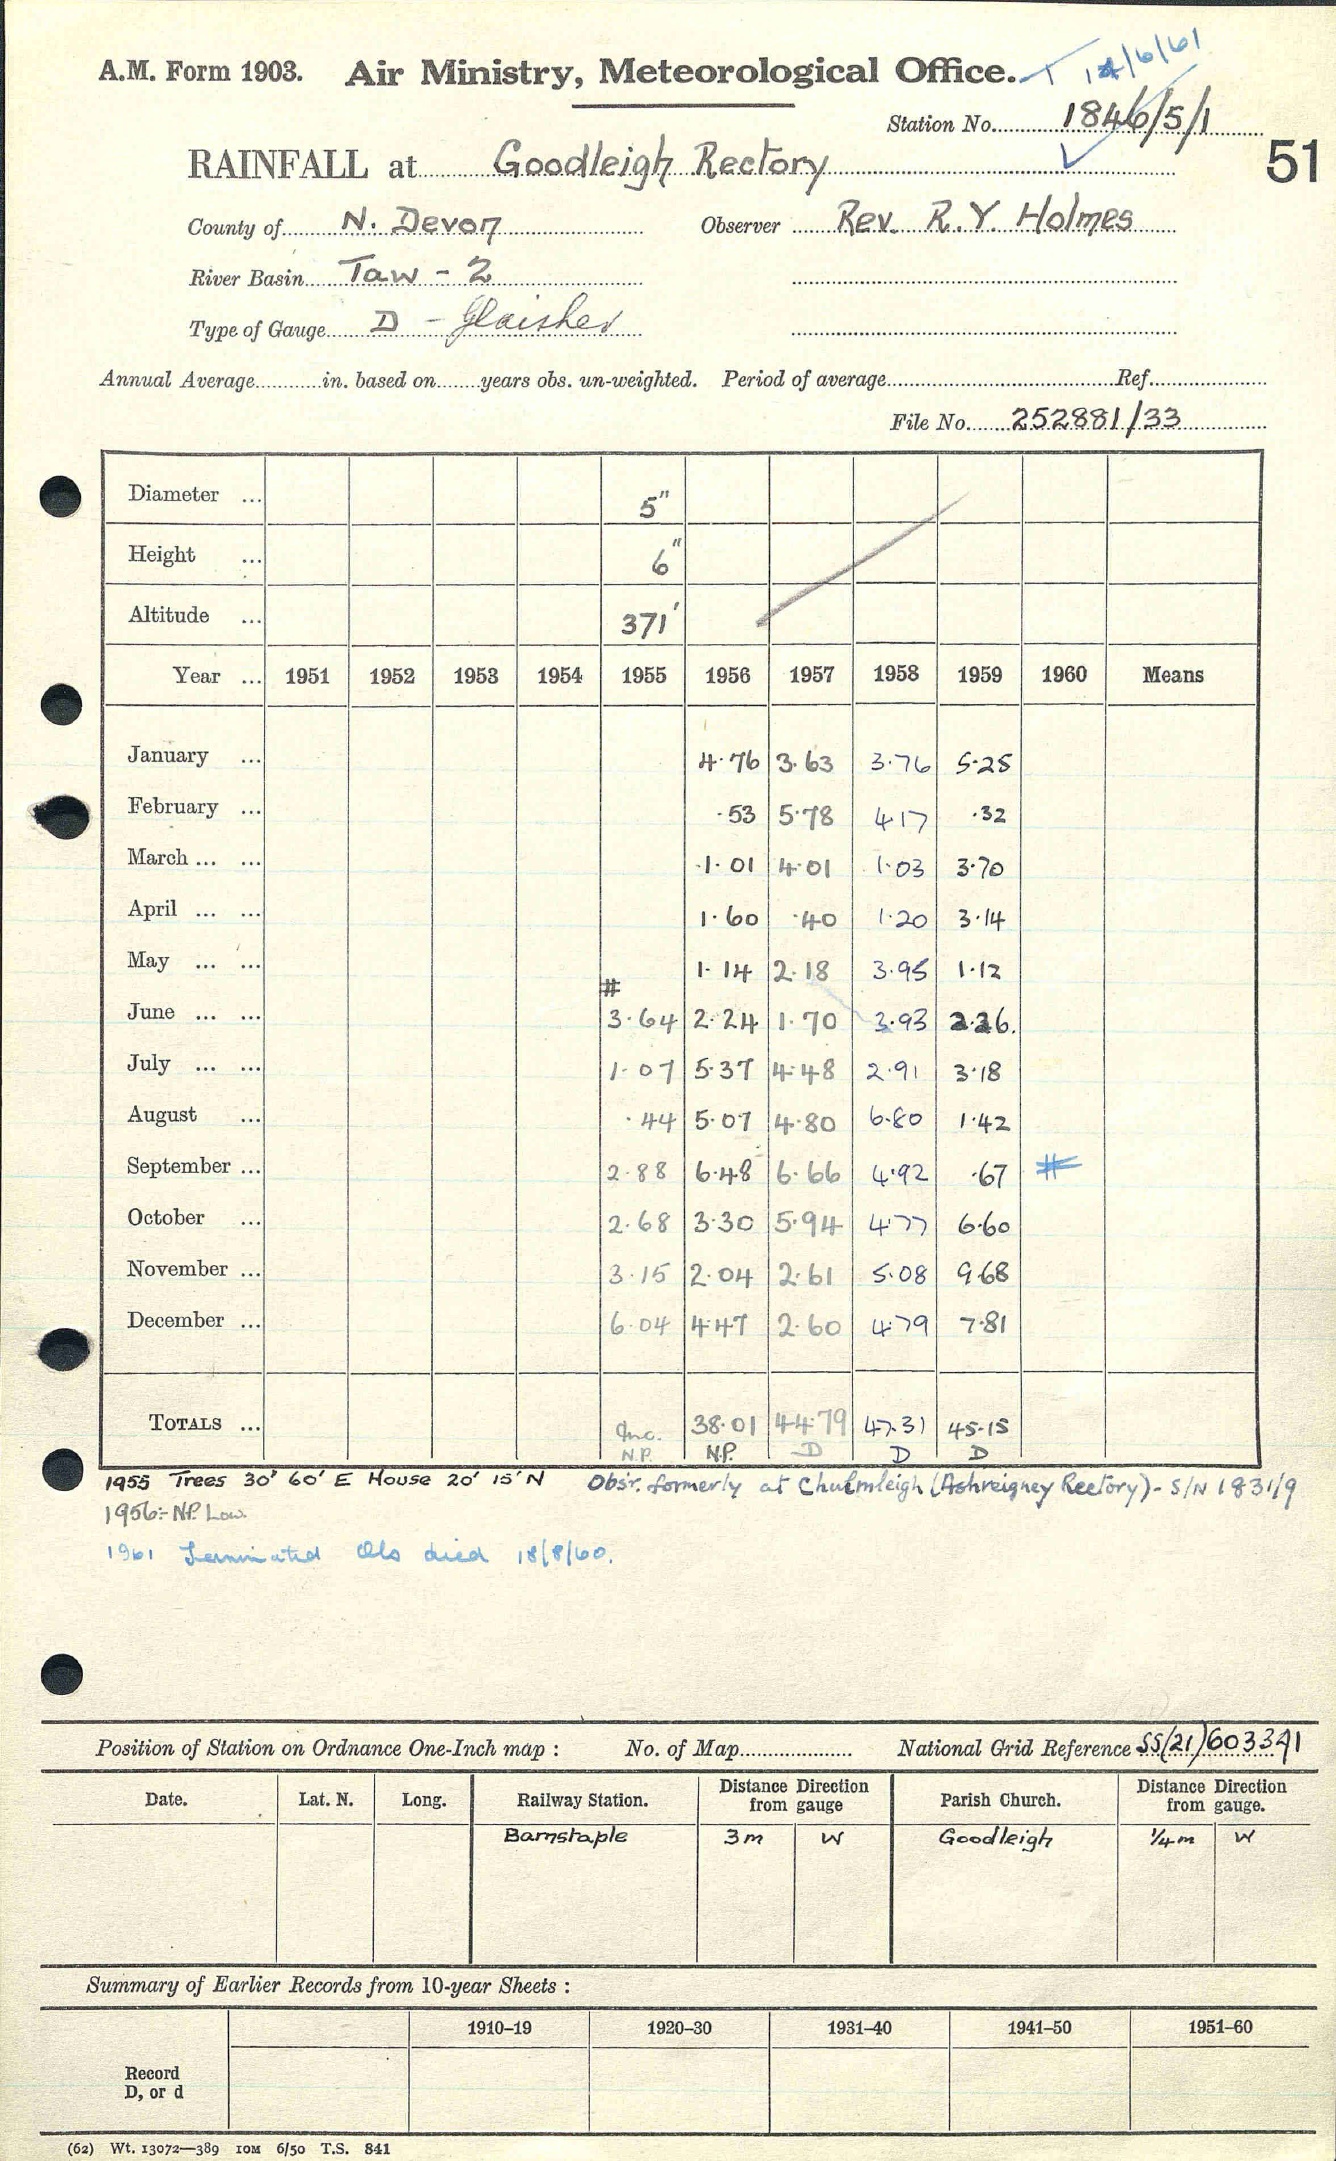 A.M. Form 1903. Air Ministry, Meteorological Office. T 14/6/61
Station No. 1846/5/1
51
RAINFALL at Goodleigh Rectory
County of N. Devon Observer Rev. R.Y. Holmes
River Basin Taw - 2
Type of Gauge D - Glaisher
Annual Average in. based on years obs. un-weighted. Period of average Ref.
File No. 252881/33
Diameter ... 5"
Height ... 6"
Altitude ... 371'
Year ... 1951 1952 1953 1954 1955 1956 1957 1958 1959 1960 Means
January ... 4.76 3.63 3.76 5.25
February ... .53 5.78 4.17 .32
March ... ... 1.01 4.01 1.03 3.70
April ... ... 1.60 .40 1.20 3.14
May ... ... 1.14 2.18 3.95 1.12
#
June ... ... 3.64 2.24 1.70 3.93 2.26
July ... ... 1.07 5.37 4.48 2.91 3.18
August ... .44 5.07 4.80 6.80 1.42
September ... 2.88 6.48 6.66 4.92 .67 #
October ... 2.68 3.30 5.94 4.77 6.60
November ... 3.15 2.04 2.61 5.08 9.68
December ... 6.04 4.47 2.60 4.79 7.81
TOTALS ... Inc. 38.01 44.79 47.31 45.15
N.P. N.P. D D D
1955 Trees 30' 60' E House 20' 15' N Obsr. formerly at Chulmleigh (Ashreigney Rectory) - S/N 1831/9
1956:- N.P. Low.
1961 Terminated Obs died 18/8/60.
Position of Station on Ordnance One-Inch map : No. of Map National Grid Reference SS(21)603341
Date. Lat. N. Long. Railway Station. Distance Direction from gauge Parish Church. Distance Direction from gauge.
Barnstaple 3m W Goodleigh 1/4m W
Summary of Earlier Records from 10-year Sheets :
1910–19 1920–30 1931–40 1941–50 1951–60
Record
D, or d
(62) Wt. 13072—389 10M 6/50 T.S. 841